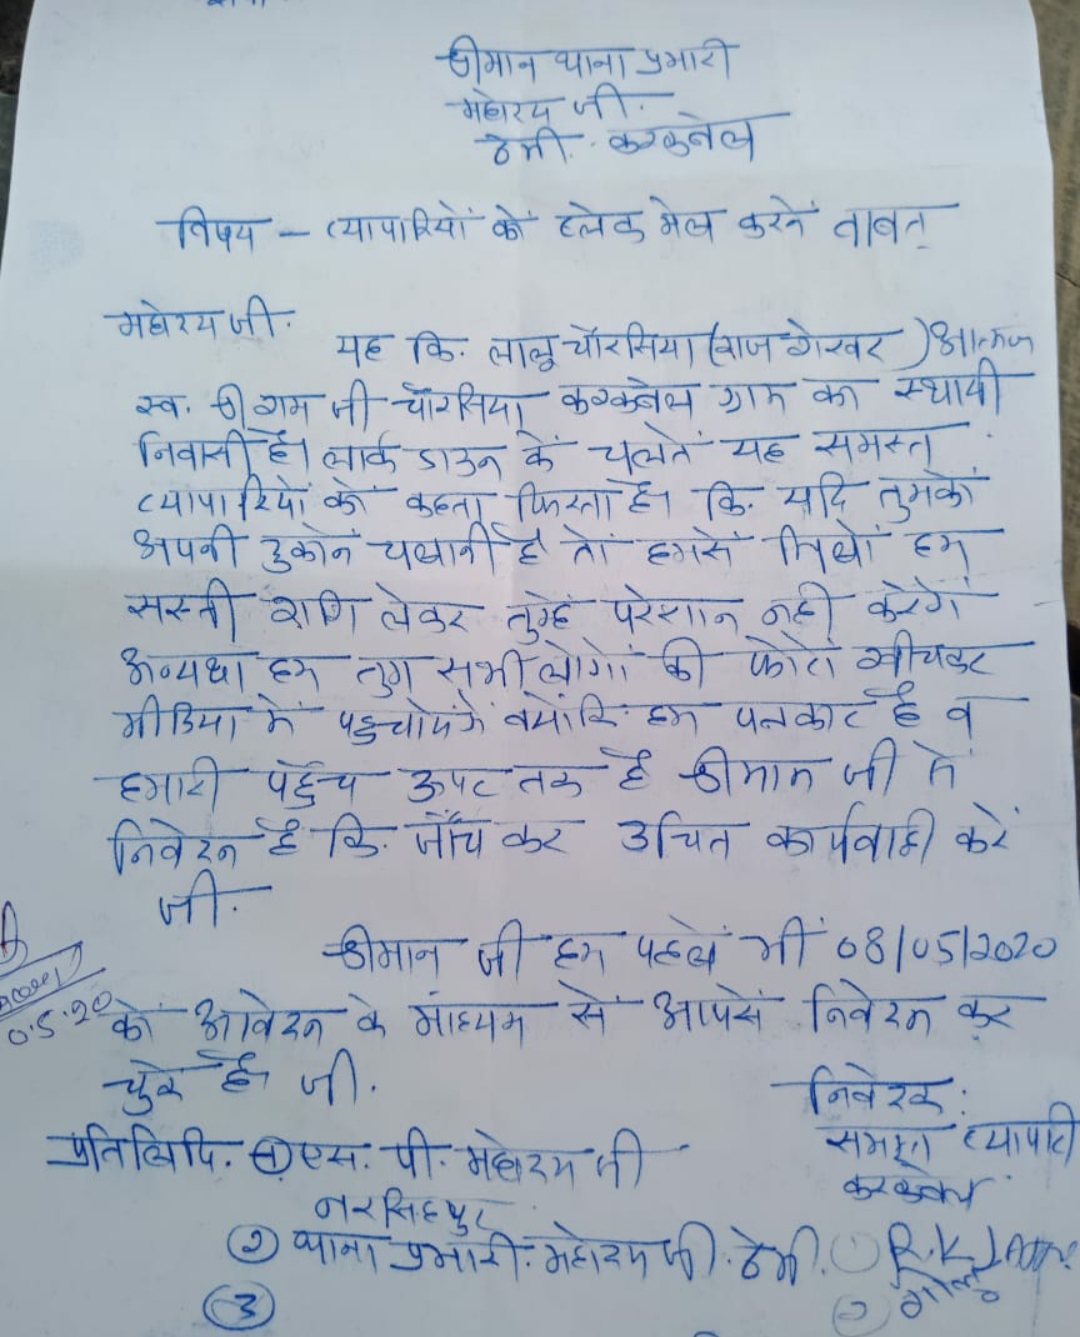 श्रीमान थाना प्रभारी
महोदय जी.
ठेमी. करकबेल
विषय - व्यापारियों को ब्लेक मेल करनें बावत्
महोदय जी.
यह कि. लालू चौरसिया (राज शेखर) आत्मज
स्व. श्री राम जी चौरसिया करकबेल ग्राम का स्थायी
निवासी है। लार्क डाउन कें चलतें यह समस्त
व्यापारियों कों कहता फिरता है। कि. यदि तुमकों
अपनी दुकानें चलानी है तों हमसें मिलों हम
सस्ती राशि लेकर तुम्हें परेशान नही करेगें
अन्यथा हम तुम सभी लोगों की फोटों खीचकर
मीडिया में पहुचायेंगें क्योंकि. हम पत्रकार है व
हमारी पहुँच ऊपर तक है श्रीमान जी सें
निवेदन है कि. जाँच कर उचित कार्यवाही करें
जी.
श्रीमान जी हम पहलें भीं 08/05/2020
कों आवेदन के माध्यम सें आपसें निवेदन कर
चुके है। जी.
0.5.20
निवेदक:
समस्त व्यापारी
करकबेल
प्रतिलिपि. ① एस. पी. महोदय जी
नरसिंहपुर
② थाना प्रभारी. महोदय जी. ठेमी.
③
① R.K.
②